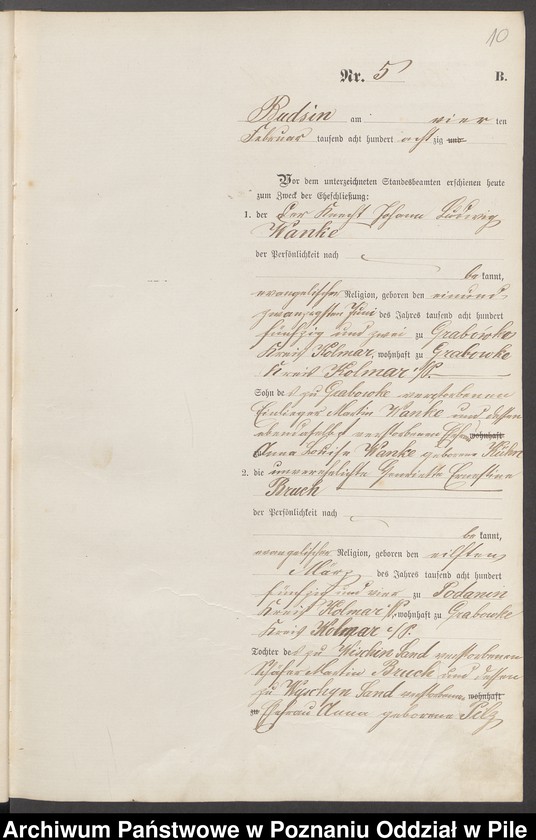 10
Nr. 5 B.
Budsin am vier ten
Februar tausend acht hundert achtzig und
Vor dem unterzeichneten Standesbeamten erschienen heute
zum Zweck der Eheschließung:
1. der Der Knecht Johann Ludwig
Wanke
der Persönlichkeit nach
be kannt,
evangelischer Religion, geboren den einund
zwanzigsten Juni des Jahres tausend acht hundert
fünfzig und zwei zu Grabowke
Kreis Kolmar, wohnhaft zu Grabowke
Kreis Kolmar i/P.
Sohn des zu Grabowke verstorbenen
Einlieger Martin Wanke und dessen
ebendaselbst verstorbenen wohnhaft
Anna Louise Wanke geborene
2. die unverehelichte Henriette Ernestine
Bruch
der Persönlichkeit nach
be kannt,
evangelischer Religion, geboren den eilften
März des Jahres tausend acht hundert
fünfzig und vier zu Podanin
Kreis Kolmar i/P. wohnhaft zu Grabowke
Kreis Kolmar i/P.
Tochter des zu Wischin Land verstorbenen
Schäfer Martin Bruch und dessen
zu Wyschyn Land verstorbenen wohnhaft
zu Ehefrau Anna geborene Pelz
Archiwum Państwowe w Poznaniu Oddział w Pile